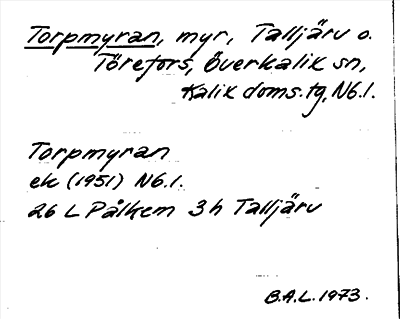 Torpmyran, myr, Talljärv o.
Törefors, Överkalix sn,
Kalix doms.tg, Nb.l.
Torpmyran
ek (1951) Nb.l.
26 L Pålkem 3h Talljärv
B.A.L. 1973.